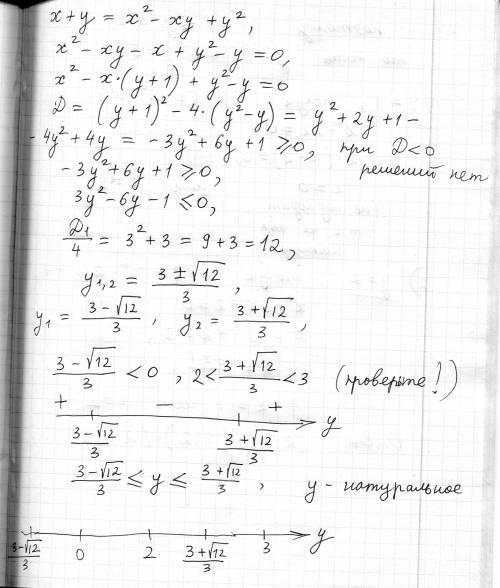 x+y = x² - xy + y²,
x² - xy - x + y² - y = 0,
x² - x·(y+1) + y² - y = 0
D = (y+1)² - 4·(y² - y) = y² + 2y + 1 -
- 4y² + 4y = -3y² + 6y + 1 ⩾ 0, при D<0
решений нет
-3y² + 6y + 1 ⩾ 0,
3y² - 6y - 1 ⩽ 0,
D₁/4 = 3² + 3 = 9 + 3 = 12,
y₁,₂ = (3 ± √12)/3,
y₁ = (3 - √12)/3, y₂ = (3 + √12)/3,
(3 - √12)/3 < 0, 2 < (3 + √12)/3 < 3 (проверьте!)
+ - + y
(3 - √12)/3 (3 + √12)/3
(3 - √12)/3 ⩽ y ⩽ (3 + √12)/3, y - натуральное
y
(3 - √12)/3 0 2 (3 + √12)/3 3